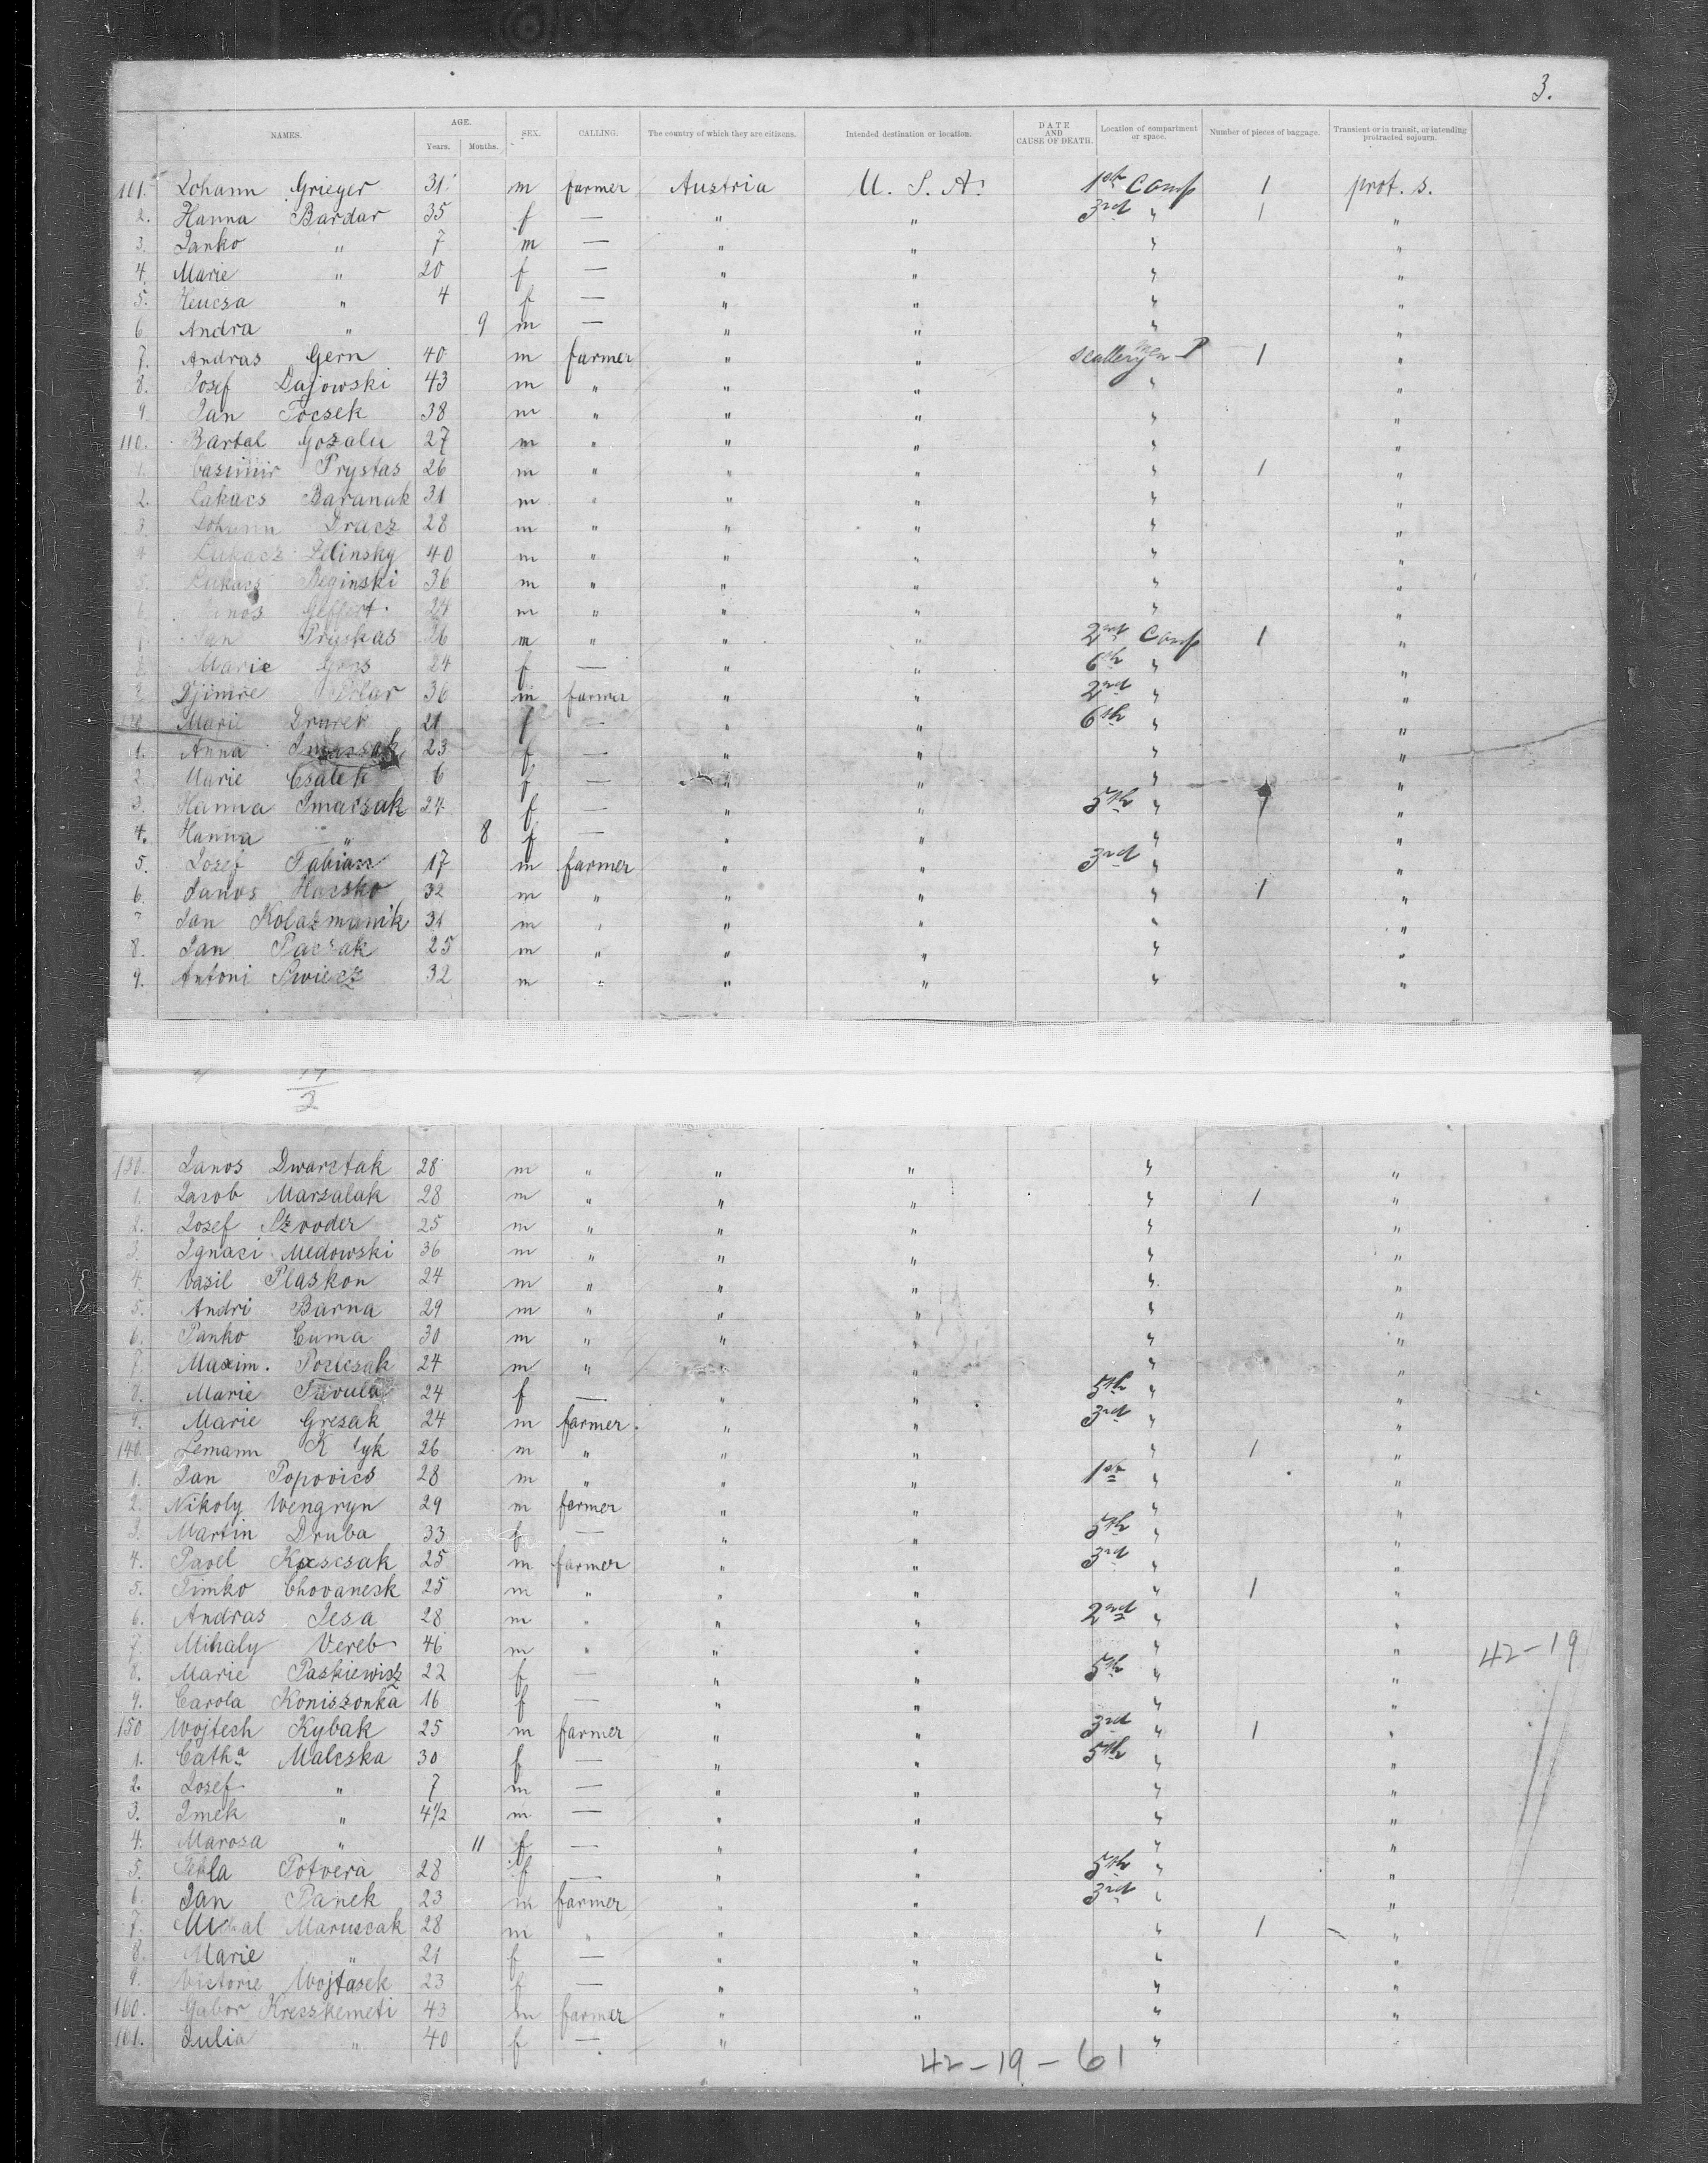 3.
NAMES. AGE. Years. Months. SEX. CALLING. The country of which they are citizens. Intended destination or location. DATE AND CAUSE OF DEATH. Location of compartment or space. Number of pieces of baggage. Transient or in transit, or intending protracted sojourn.
101. Johann Grieger 31 m farmer Austria U. S. A. 1st Comp 1 prot. s.
2. Hanna Bardar 35 f — " " 3rd " 1 "
3. Janko " 7 m — " " " "
4. Marie " 20 f — " " " "
5. " 4 f — " " " "
6 Andra " 9 m — " " " "
7. Andras Gern 40 m farmer " " 1 "
8. Josef Dajowski 43 m " " " " "
9 Jan Tocsek 38 m " " " " "
110. Bartal Gozalu 27 m " " " " "
1. Casimir Prystas 26 m " " " " 1 "
2. Lakacs Baranak 31 m " " " " "
3. Johann Dracz 28 m " " " " "
4 Lukacz Zelinsky 40 m " " " " "
5. Lukacs Beginski 36 m " " " " "
6. Janos m " " " " "
Jan 26 m " " " 2nd Comp 1 "
8. Marie 24 f — " " 6th " "
9 36 m farmer " " 2nd " "
Marie Drurek 21 f — " " 6th " "
1. Anna 23 f — " " " "
2. Marie Csalek 6 f — " " " "
3. Hanna Imaczak 24 f — " " 5th " 1 "
4. Hanna " 8 f — " " " "
5. Josef Fabian 17 m farmer " " 3rd " "
6. Janos Hacsko 32 m " " " " 1 "
7 Jan Kolazmunik 31 m " " " " "
8. Jan Paczak 25 m " " " " "
9. Antoni Swiecz 32 m " " " " "
130. Janos Dwarztak 28 m " " " " "
1. Jacob Marzalak 28 m " " " " 1 "
2. Josef Szroder 25 m " " " " "
3. Ignaci Medowski 36 m " " " " "
4. Vasil Plaskon 24 m " " " " "
5. Andri Barna 29 m " " " " "
6. Panko Cuma 30 m " " " " "
7. Maxim. 24 m " " " " "
8. Marie 24 f — " " 5th " "
9. Marie Gresak 24 m farmer. " " 3rd " "
140. Lemann 26 m " " " " 1 "
1. Jan Popovics 28 m " " " 1st " "
2. Nikoly Wengryn 29 m farmer " " " "
3. Martin Druba 33 f — " " 5th " "
4. Pavel Koscsak 25 m farmer " " 3rd " "
5. Timko Chovanesk 25 m " " " " 1 "
6. Andras Jesa 28 m " " " 2nd " "
7. Mihaly Vereb 46 m " " " " "
42-19
8. Marie Paskiewisz 22 f — " " 5th " "
9. Carola Koniszonka 16 f — " " " "
150 Wojtech Kybak 25 m farmer " " 3rd " 1 "
1. Catha Malcska 30 f — " " 5th " "
2. Josef " 7 m — " " " "
3. Imek " 4 1/2 m — " " " "
4. Marosa " 11 f — " " " "
5. Tekla Potvera 28 f — " " 5th " "
6. Jan Panek 23 m farmer " " 3rd " "
7. Michal Maruscak 28 m " " " " 1 "
8. Marie " 21 f — " " " "
9. Victorie Wojtasek 23 f — " " " "
160. Gabor Kreszkemeti 43 m farmer " " " "
161. Julia " 40 f — " "
42-19-61